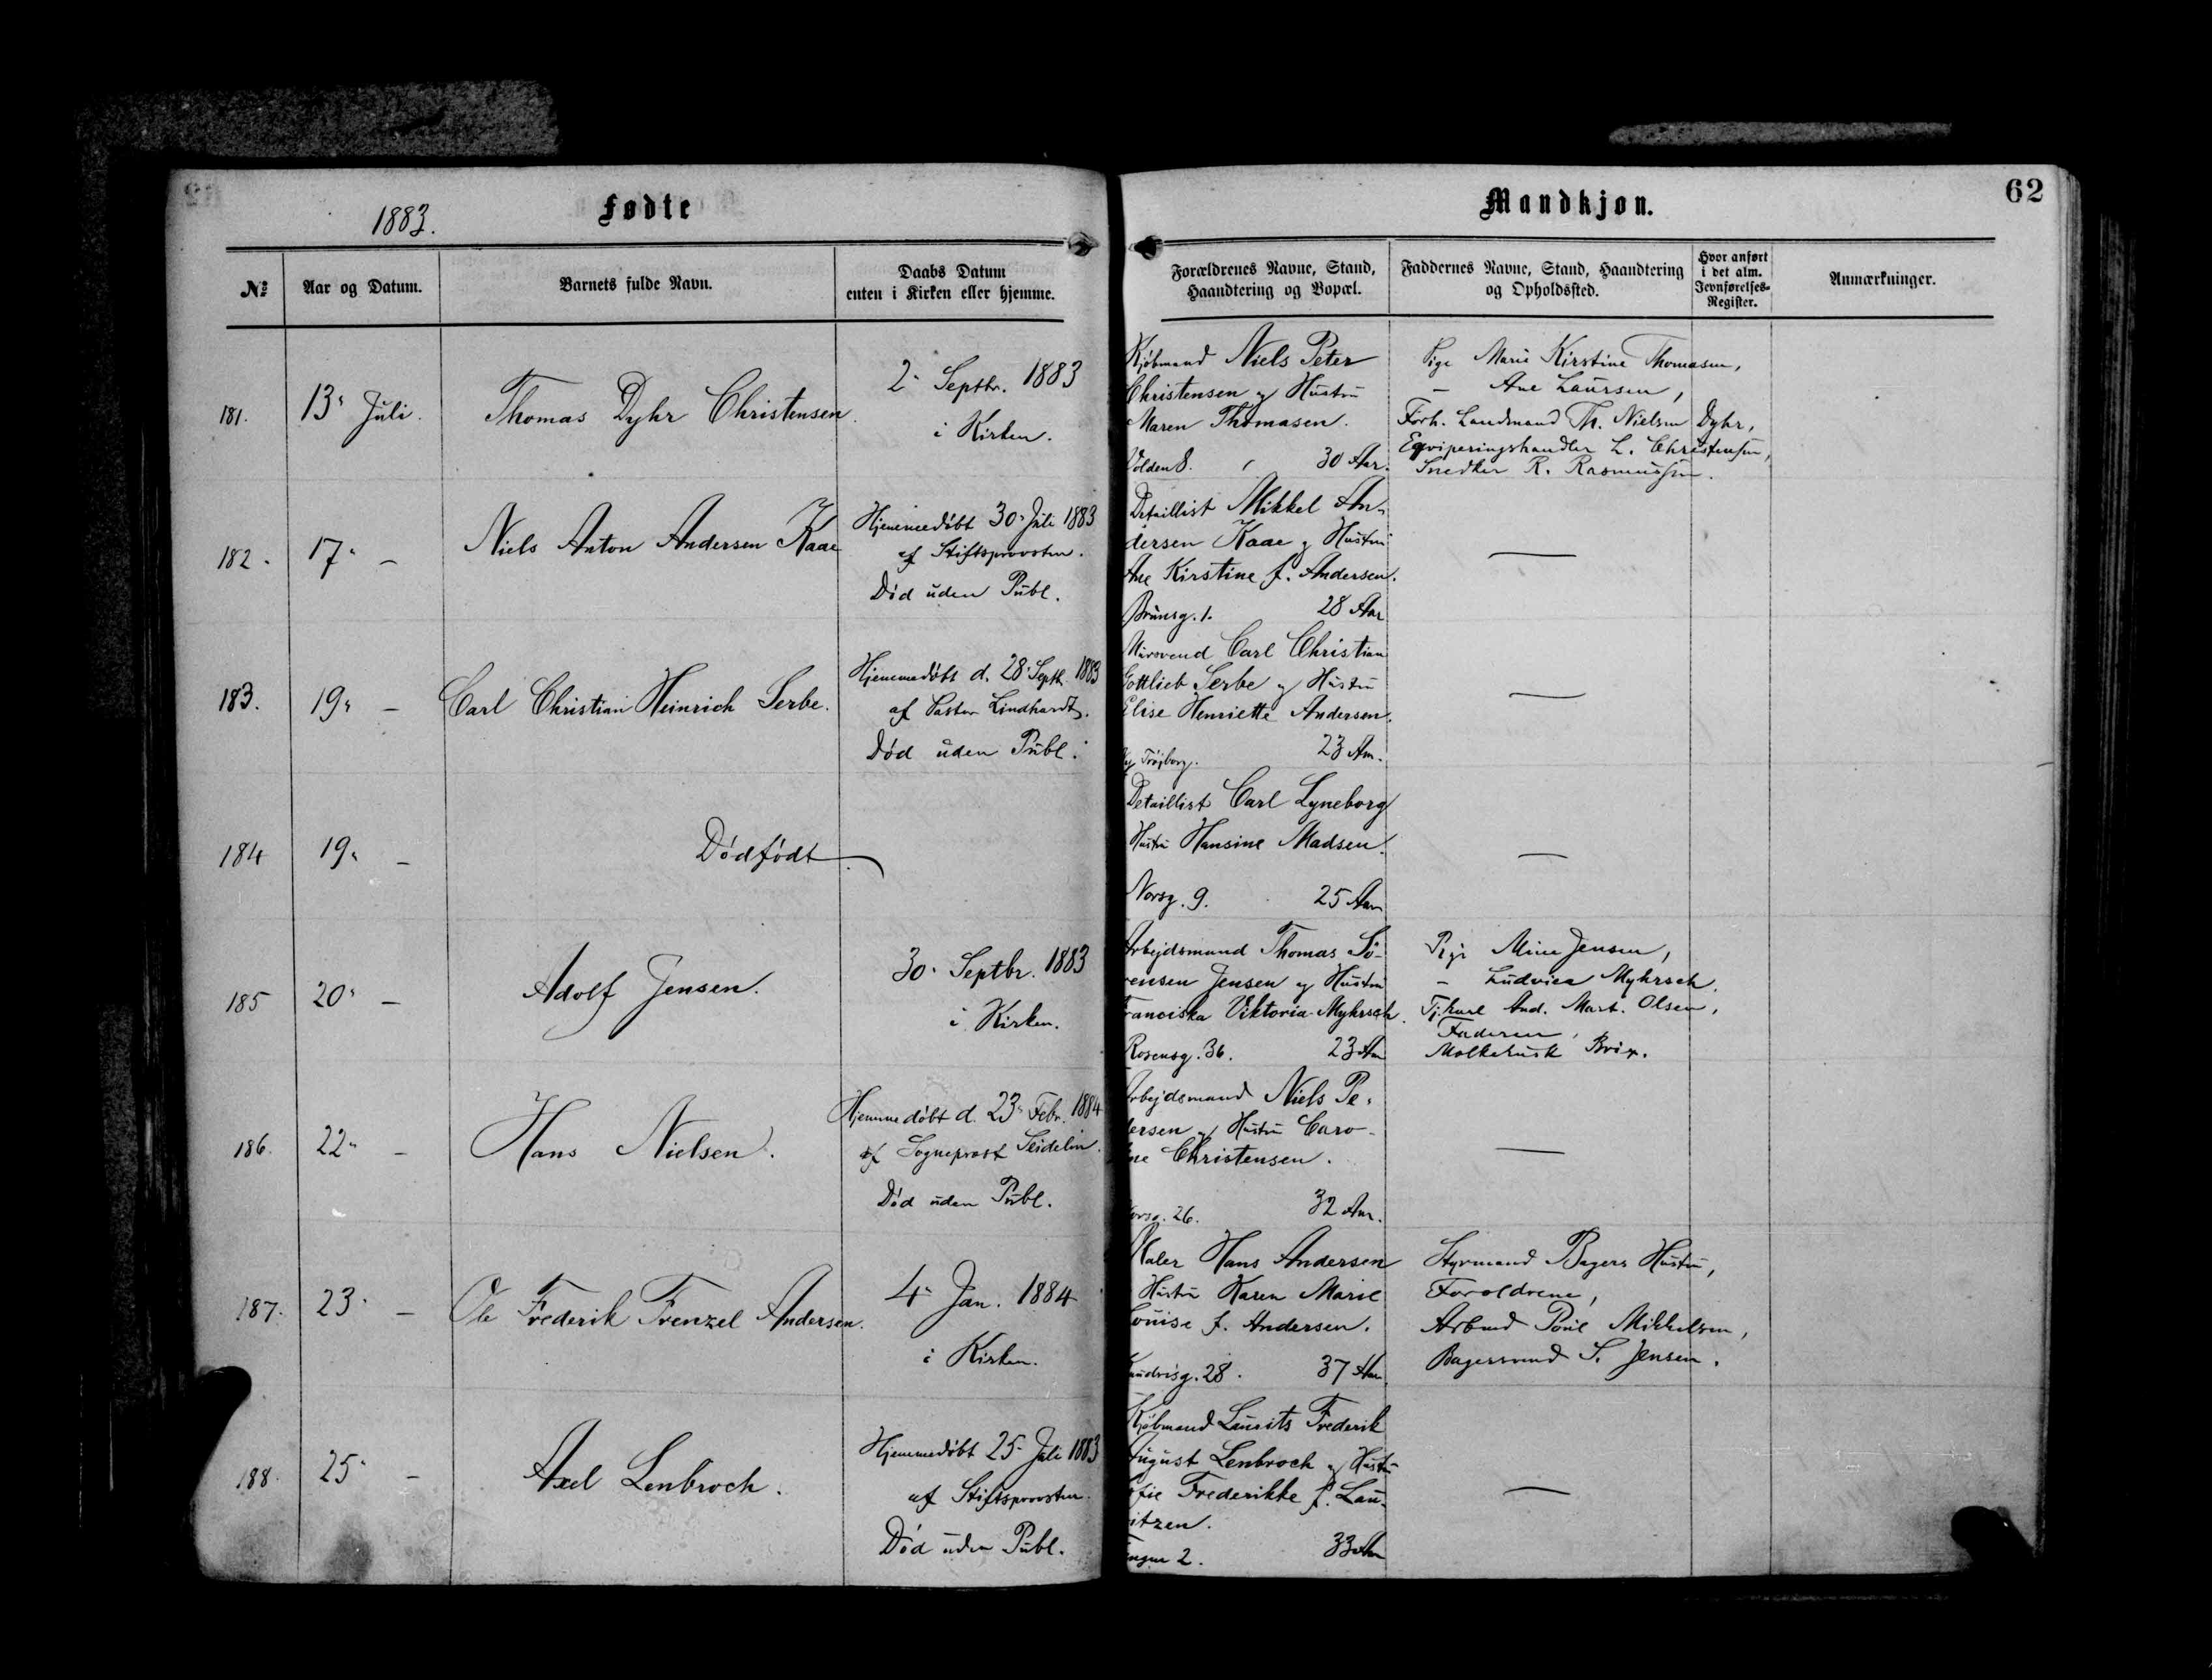 62
1883.
Fødte
Mandkjøn.
№
Aar og Datum.
Barnets fulde Navn.
Daabs Datum
enten i Kirken eller hjemme.
Forældrenes Navne, Stand,
Haandtering og Bopæl.
Faddernes Navne, Stand, Haandtering
og Opholdssted.
Hvor anført
i det alm.
Jevnførelses-
Register.
Anmærkninger.
181.
13. Juli.
Thomas Dyhr Christensen.
2. Septbr. 1883
i Kirken.
Kjøbmand Niels Peter
Christensen og Hustru
Maren Thomasen.
Volden 8. 30 Aar.
Pige Marie Kirstine Thomasen,
— Ane Laursen,
Forh. Landmand Th. Nielsen Dyhr,
Eqviperingshandler L. Christensen,
Snedker R. Rasmussen.
182.
17. —
Niels Anton Andersen Kaae
Hjemmedøbt 30. Juli 1883
af Stiftsprovsten.
Død uden Publ.
Detaillist Mikkel An-
dersen Kaae og Hustru
Ane Kirstine f. Andersen.
Brunsg. 1. 28 Aar
—
183.
19. —
Carl Christian Heinrich Serbe.
Hjemmedøbt d. 28. Septb. 1883
af Pastor Lindhardt.
Død uden Publ.
Murersvend Carl Christian
Gottlieb Serbe og Hustru
Elise Henriette Andersen.
Ny Trøjborg. 23 Aar.
—
184
19. —
Dødfødt.
Detaillist Carl Lyneborg
Hustru Hansine Madsen.
Norsg. 9. 25 Aar
—
185
20. —
Adolf Jensen.
30. Septbr. 1883
i Kirken.
Arbejdsmand Thomas Sø-
rensen Jensen og Hustru
Franciska Viktoria Myhrsch.
Rosensg. 36. 23 Aar
Pige Mine Jensen,
— Ludvica Myhrsch.
Tj.karl And. Mart. Olsen,
Faderen,
Brix.
186.
22. —
Hans Nielsen.
Hjemmedøbt d. 23. Febr. 1884
af Sognepræst Seidelin.
Død uden Publ.
Arbejdsmand Niels Pe-
dersen og Hustru Caro-
line Christensen.
26. 32 Aar.
—
187.
23. —
Ole Frederik Frenzel Andersen.
4. Jan. 1884
i Kirken.
Maler Hans Andersen
Hustru Karen Marie
Louise f. Andersen.
28. 37 Aar.
Styrmand Bagers Hustru,
Forældrene,
Arbmd Poul Mikkelsen,
Bagersvend S. Jensen.
188.
25. —
Axel Lenbroch.
Hjemmedøbt 25. Juli 1883
af Stiftsprovsten.
Død uden Publ.
Kjøbmand Laurits Frederik
August Lenbroch og Hustru
Sofie Frederikke f. Lau-
ritzen.
2. 33 Aar
—